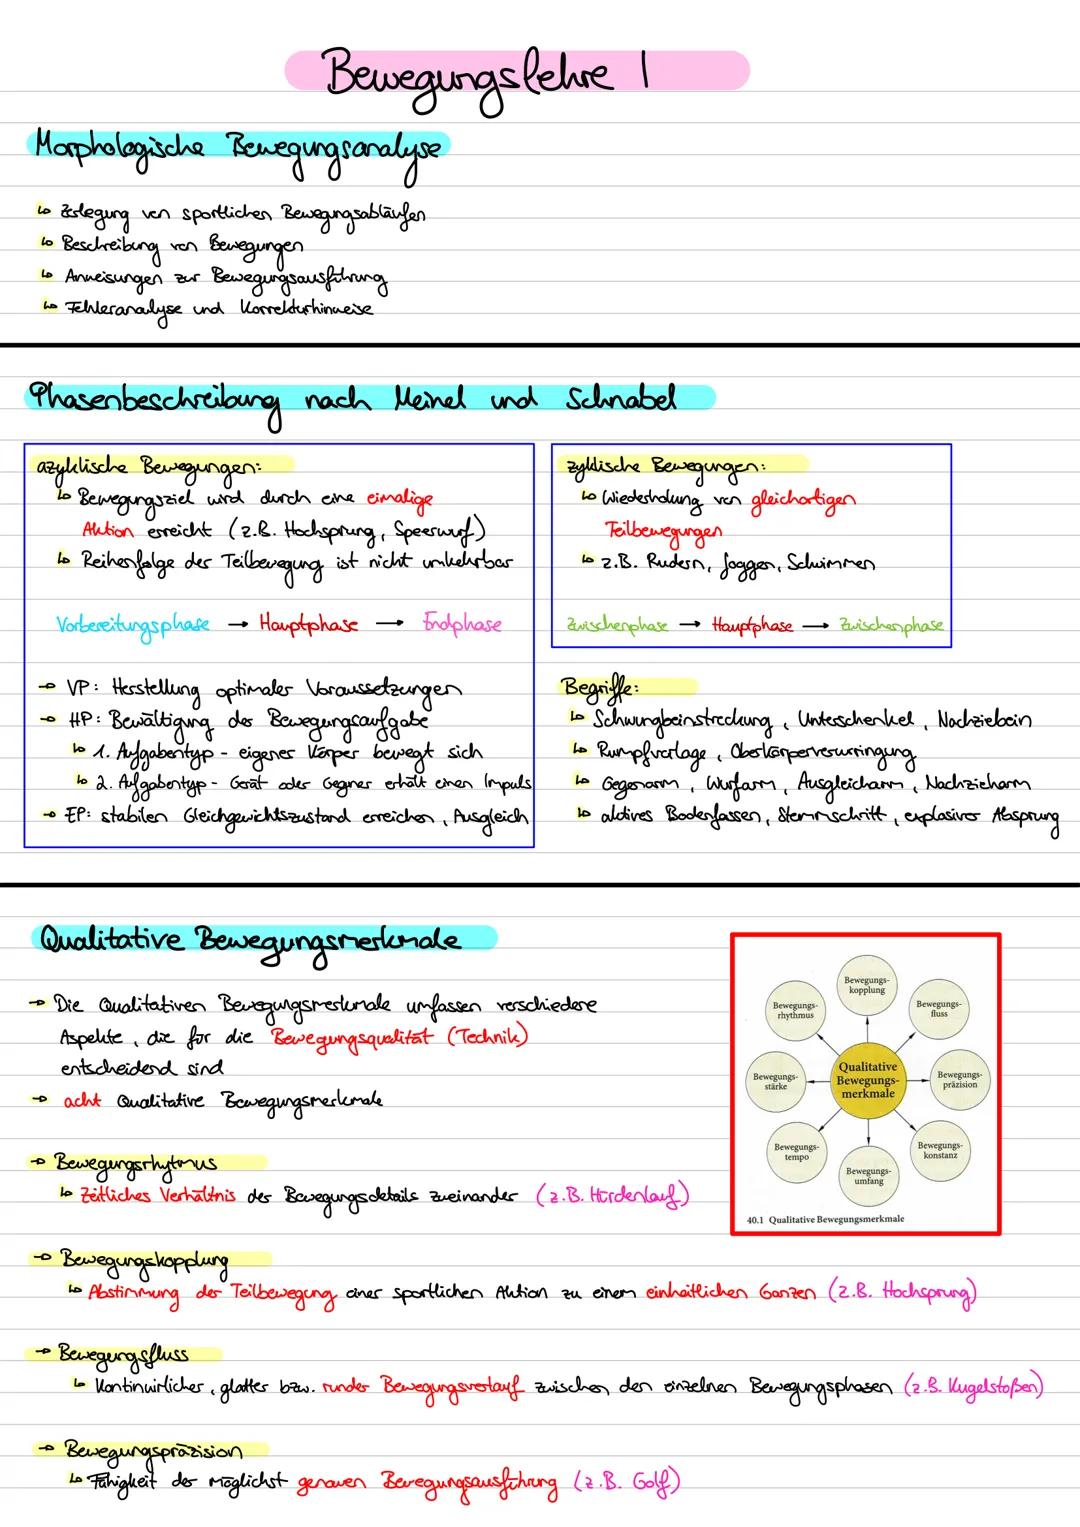 Bewegungslehre 1
Morphologische Bewegungsanalyse
↳ Zerlegung von sportlichen Bewegungsabläufen
↳ Beschreibung von Bewegungen
↳ Anweisungen zur Bewegungsausführung
↳ Fehleranalyse und Korrekturhinweise
Phasenbeschreibung nach Meinel und Schnabel
azyklische Bewegungen:
↳ Bewegungsziel wird durch eine eimalige
Aktion erreicht (z.B. Hochsprung, Speerwurf)
↳ Reihenfolge der Teilbewegung ist nicht umkehrbar
Vorbereitungsphase → Hauptphase → Endphase
→ VP: Herstellung optimaler Voraussetzungen
→ HP: Bewältigung der Bewegungsaufgabe
↳ 1. Aufgabentyp - eigener Körper bewegt sich
↳ 2. Aufgabentyp - Gerät oder Gegner erhält einen Impuls
→ EP: stabilen Gleichgewichtszustand erreichen, Ausgleich
zyklische Bewegungen:
↳ Wiederholung von gleichartigen
Teilbewegungen
↳ z.B. Rudern, Joggen, Schwimmen
Zwischenphase → Hauptphase → Zwischenphase
Begriffe:
↳ Schwungbeinstreckung, Unterschenkel, Nachziebein
↳ Rumpfvorlage, Oberkörperverwringung
↳ Gegenarm, Wurfarm, Ausgleicharm, Nachzieharm
↳ aktives Bodenfassen, Stemmschritt, explosiver Absprung
Qualitative Bewegungsmerkmale
→ Die Qualitativen Bewegungsmerkmale umfassen verschiedene
Aspekte, die für die Bewegungsqualität (Technik)
entscheidend sind
→ acht Qualitative Bewegungsmerkmale
Bewegungs-
kopplung
Bewegungs-
rhythmus
Bewegungs-
fluss
Qualitative
Bewegungs-
merkmale
Bewegungs-
stärke
Bewegungs-
präzision
Bewegungs-
tempo
Bewegungs-
konstanz
Bewegungs-
umfang
40.1 Qualitative Bewegungsmerkmale
→ Bewegungsrhytmus
↳ Zeitliches Verhältnis der Bewegungsdetails zueinander (z.B. Hürdenlauf)
→ Bewegungskopplung
↳ Abstimmung der Teilbewegung einer sportlichen Aktion zu einem einheitlichen Ganzen (z.B. Hochsprung)
→ Bewegungsfluss
↳ Kontinuirlicher, glatter bzw. runder Bewegungsverlauf zwischen den einzelnen Bewegungsphasen (z.B. Kugelstoßen)
→ Bewegungspräzision
↳ Fähigkeit der möglichst genauen Bewegungsausführung (z.B. Golf)